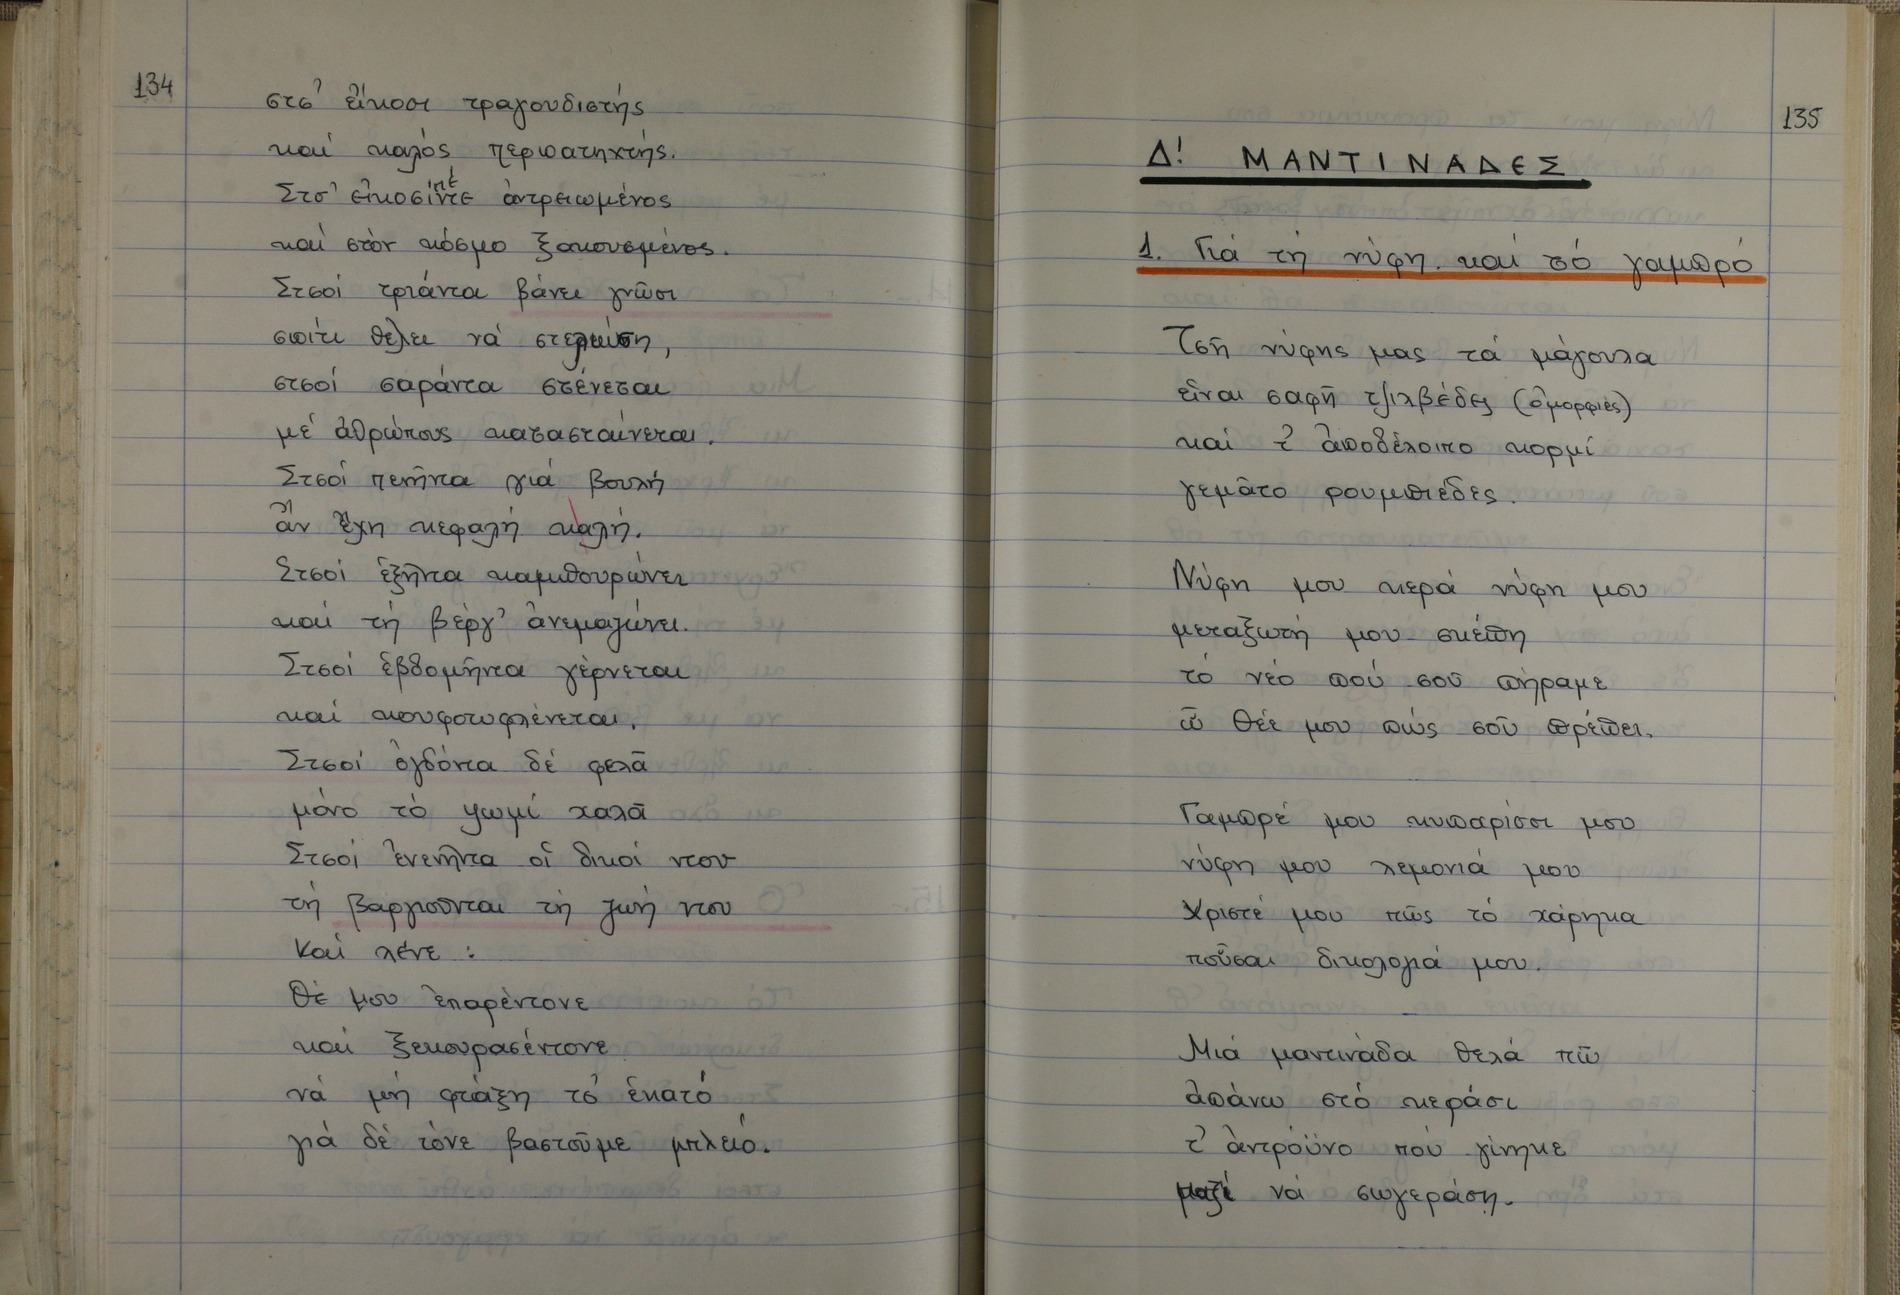 134
στσ' εἴκοσι τραγουδιστής
καί καλός περπατηχτής.
Στσ' εἰκοσιπέντε ἀντρειωμένος
καί στόν κόσμο ξακουσμένος.
Στσοί τριάντα βάνει γνῶσι
σπίτι θέλει νά στεριώση,
στσοί σαράντα στένεται
μέ ἀθρώπους κατασταίνεται.
Στσοί πενῆντα γιά βουλή
ἄν ἔχη κεφαλή καλή.
Στσοί ἑξῆντα καμπουρώνει
καί τή βέργ' ἀνεμαζώνει.
Στσοί ἑβδομῆντα γέρνεται
καί κουφοτυφλένεται.
Στσοί ὀγδόντα δέ φελᾶ
μόνο τό ψωμί χαλᾶ
Στσοί ἐνενῆντα οἱ δικοί ντου
τή βαργιοῦνται τή ζωή ντου
Καί λένε :
Θέ μου ἐπαρέντονε
καί ξεκουρασέντονε
νά μή φτάξη τσ' ἑκατό
γιά δέ τόνε βαστοῦμε μπλειό.
135
Δ! ΜΑΝΤΙΝΑΔΕΣ
1. Γιά τή νύφη καί τό γαμπρό
Τσῆ νύφης μας τά μάγουλα
εἶναι σαφῆ τζιλβέδες (ὀμορφιές)
καί τ' ἀποδέλοιπο κορμί
γεμᾶτο ρουμπιέδες.
Νύφη μου κερά νύφη μου
μεταξωτή μου σκέπη
τό νέο πού σοῦ πήραμε
ὦ Θέέ μου πώς σοῦ πρέπει.
Γαμπρέ μου κυπαρίσσι μου
νύφη μου λεμονιά μου
Χριστέ μου πῶς τό χάρηκα
ποὖσαι δικολογιά μου.
Μιά μαντινάδα θελά πῶ
ἀπάνω στό κεράσι
τ' ἀντρόϋνο πού γίνηκε
μαζί νά σωγεράση.